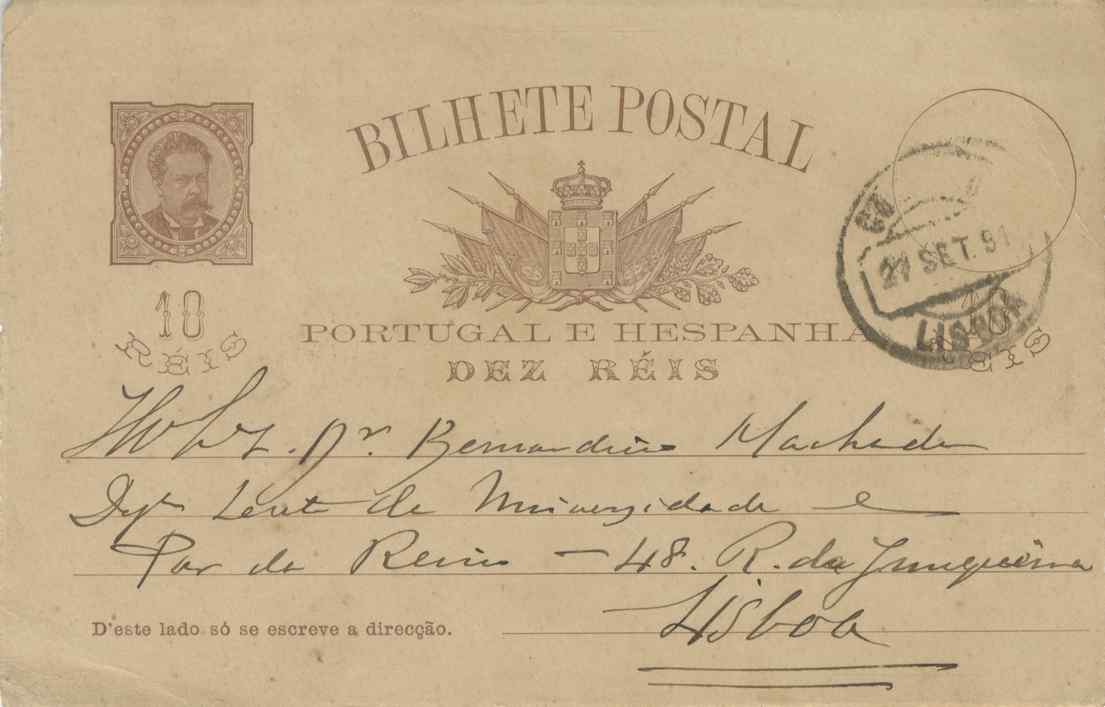 BILHETE POSTAL
10
RÉIS
PORTUGAL E HESPANHA
DEZ RÉIS
27 SET. 91
LISBOA
Dr. Bernardino Machado
Lente da Universidade e
Par do Reino — 48. R. da Junqueira
Lisboa
D'este lado só se escreve a direcção.